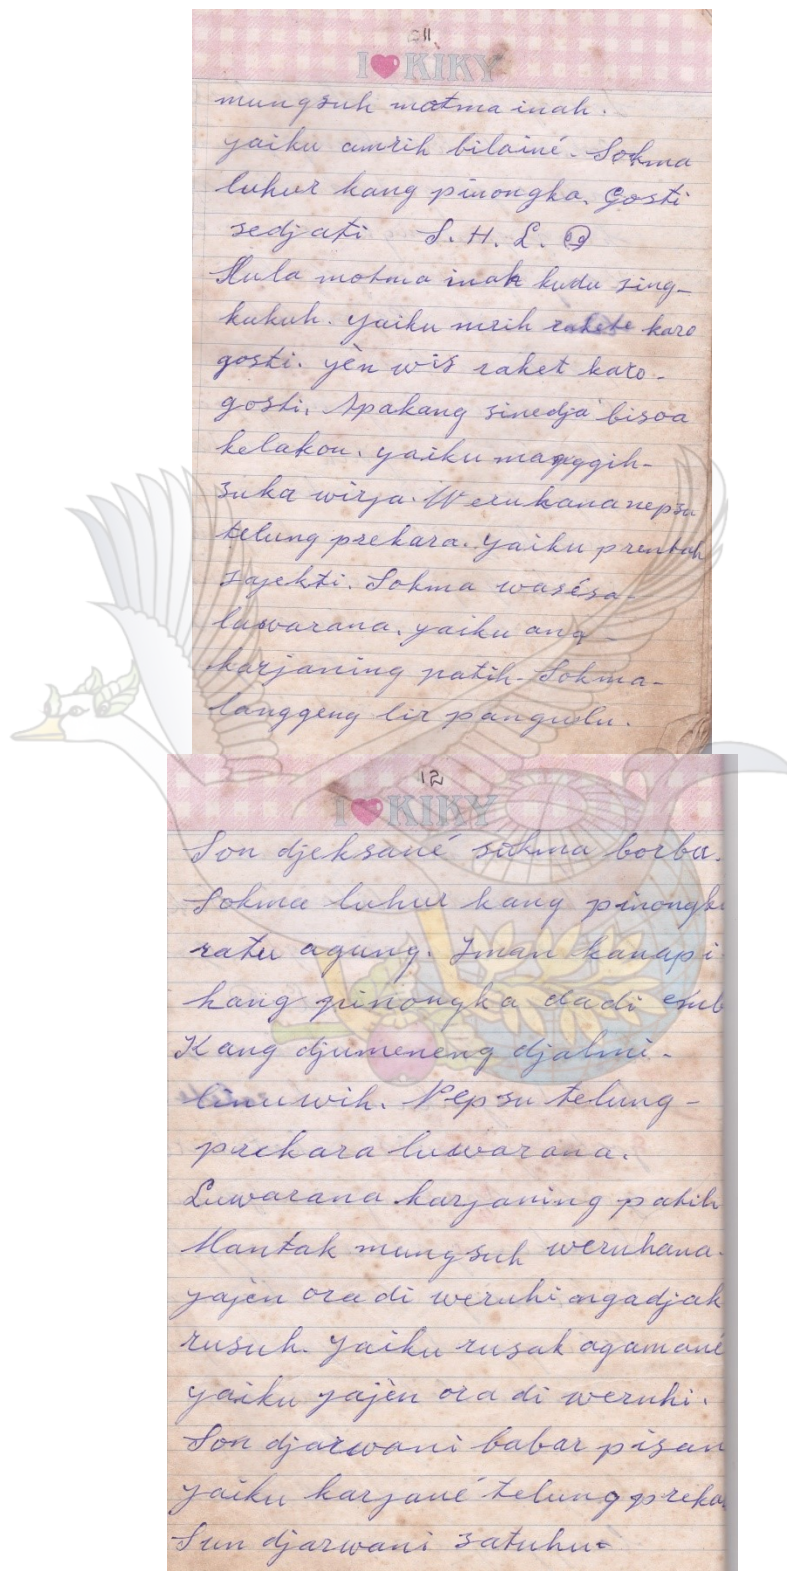 11.
I ❤ KIKY
mungsuh motma inah.
yaiku amrih bilainé. Sokma
luhur kang pinongka. Gosti
sedjati S. H. L.
Mula motma inah kudu sing-
kukuh. yaiku mrih rakete karo
gosti. yèn wis raket karo-
gosti. Apakang sinedja bisoa
kelakon. yaiku manggih-
suka wirja. Weruhana nepsu
telung prekara. yaiku prentah
sajekti. Sokma wasésa-
luwarana. yaiku ang-
karjaning patih. Sokma-
langgeng lir pangulu.
12
I ❤ KIKY
Son djeksané sukma borba.
Sokma luhur kang pinongka
ratu agung. Iman kanapi
kang pinongka dadi emb
Kang djumeneng djalmi-
linuwih. Nepsu telung-
prekara luwarana.
Luwarana karjaning patih
Mantak mungsuh weruhana.
yajèn ora di weruhi angadjak
rusuh. yaiku rusak agamané
yaiku yajèn ora di weruhi.
Son djarwani babar pisan
yaiku karjané telung preka
Sun djarwani satuhu-